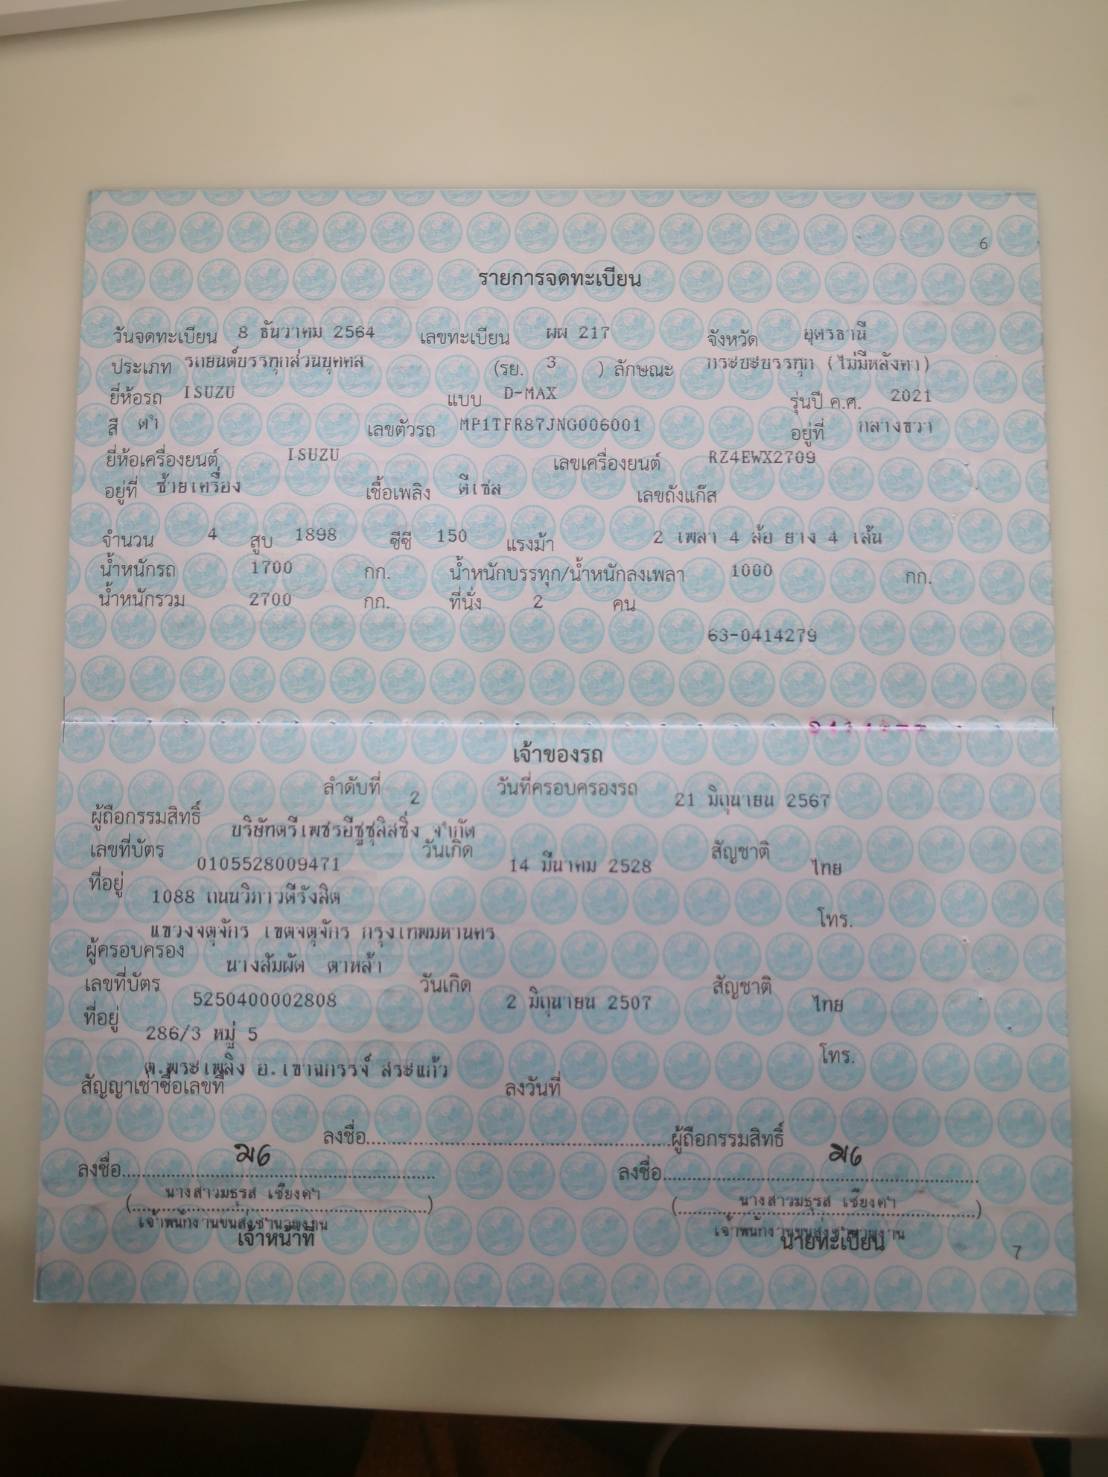 6
รายการจดทะเบียน
วันจดทะเบียน 8 ธันวาคม 2564 เลขทะเบียน ผผ 217 จังหวัด อุดรธานี
ประเภท รถยนต์บรรทุกส่วนบุคคล (รย. 3 ) ลักษณะ กระบะบรรทุก (ไม่มีหลังคา)
ยี่ห้อรถ ISUZU แบบ D-MAX รุ่นปี ค.ศ. 2021
สี ดำ เลขตัวรถ MP1TFR87JNG006001 อยู่ที่ กลางขวา
ยี่ห้อเครื่องยนต์ ISUZU เลขเครื่องยนต์ RZ4EWX2709
อยู่ที่ ซ้ายเครื่อง เชื้อเพลิง ดีเซล เลขถังแก๊ส
จำนวน 4 สูบ 1898 ซีซี 150 แรงม้า 2 เพลา 4 ล้อ ยาง 4 เส้น
น้ำหนักรถ 1700 กก. น้ำหนักบรรทุก/น้ำหนักลงเพลา 1000 กก.
น้ำหนักรวม 2700 กก. ที่นั่ง 2 คน
63-0414279
เจ้าของรถ
ลำดับที่ 2 วันที่ครอบครองรถ 21 มิถุนายน 2567
ผู้ถือกรรมสิทธิ์ บริษัทตรีเพชรอีซูซุลิสซิ่ง จำกัด
เลขที่บัตร 0105528009471 วันเกิด 14 มีนาคม 2528 สัญชาติ ไทย
ที่อยู่ 1088 ถนนวิภาวดีรังสิต
โทร.
แขวงจตุจักร เขตจตุจักร กรุงเทพมหานคร
ผู้ครอบครอง นางสัมผัด ตาหล้า
เลขที่บัตร 5250400002808 วันเกิด 2 มิถุนายน 2507 สัญชาติ ไทย
ที่อยู่ 286/3 หมู่ 5
โทร.
ต.พระเพลิง อ.เขาฉกรรจ์ สระแก้ว
สัญญาเช่าซื้อเลขที่ ลงวันที่
ลงชื่อ ผู้ถือกรรมสิทธิ์
ลงชื่อ ลงชื่อ
(นางสาวมธุรส เชียงคำ) (นางสาวมธุรส เชียงคำ)
เจ้าพนักงานขนส่งชำนาญงาน เจ้าพนักงานขนส่งชำนาญงาน
เจ้าหน้าที่ นายทะเบียน
7